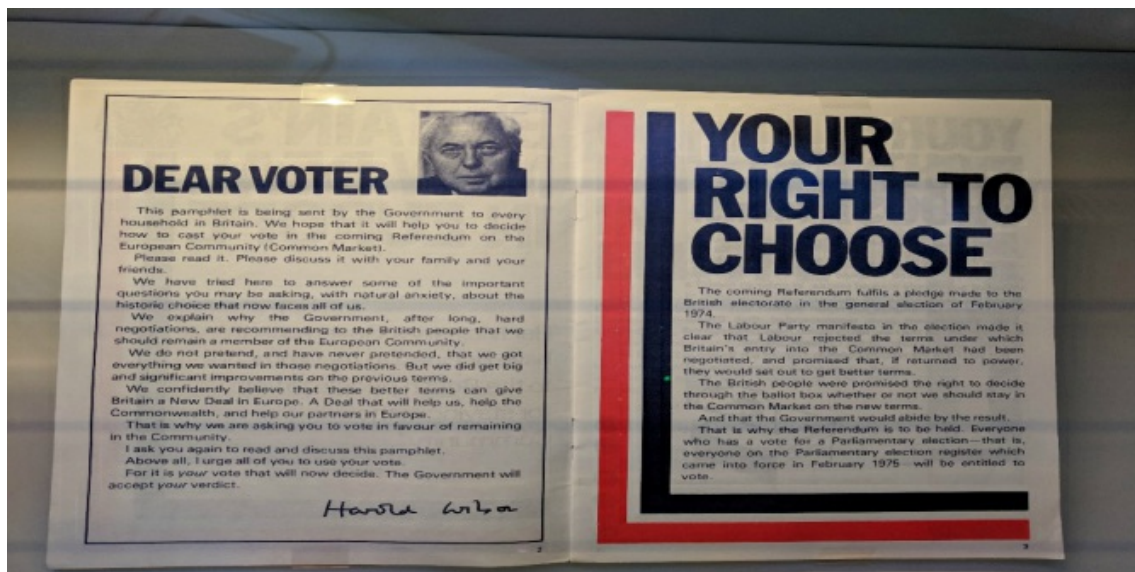 DEAR VOTER
This pamphlet is being sent by the Government to every
household in Britain. We hope that it will help you to decide
how to cast your vote in the coming Referendum on the
European Community (Common Market).
Please read it. Please discuss it with your family and your
friends.
We have tried here to answer some of the important
questions you may be asking, with natural anxiety, about the
historic choice that now faces all of us.
We explain why the Government, after long, hard
negotiations, are recommending to the British people that we
should remain a member of the European Community.
We do not pretend, and have never pretended, that we got
everything we wanted in these negotiations. But we did get big
and significant improvements on the previous terms.
We confidently believe that these better terms can give
Britain a New Deal in Europe. A Deal that will help us, help the
Commonwealth, and help our partners in Europe.
That is why we are asking you to vote in favour of remaining
in the Community.
I ask you again to read and discuss this pamphlet.
Above all, I urge all of you to use your vote.
For it is your vote that will now decide. The Government will
accept your verdict.
Harold Wilson
2
YOUR
RIGHT TO
CHOOSE
The coming Referendum fulfils a pledge made to the
British electorate in the general election of February
1974.
The Labour Party manifesto in the election made it
clear that Labour rejected the terms under which
Britain's entry into the Common Market had been
negotiated, and promised that, if returned to power,
they would set out to get better terms.
The British people were promised the right to decide
through the ballot box whether or not we should stay in
the Common Market on the new terms.
And that the Government would abide by the result.
That is why the Referendum is to be held. Everyone
who has a vote for a Parliamentary election—that is,
everyone on the Parliamentary election register which
came into force in February 1975—will be entitled to
vote.
3